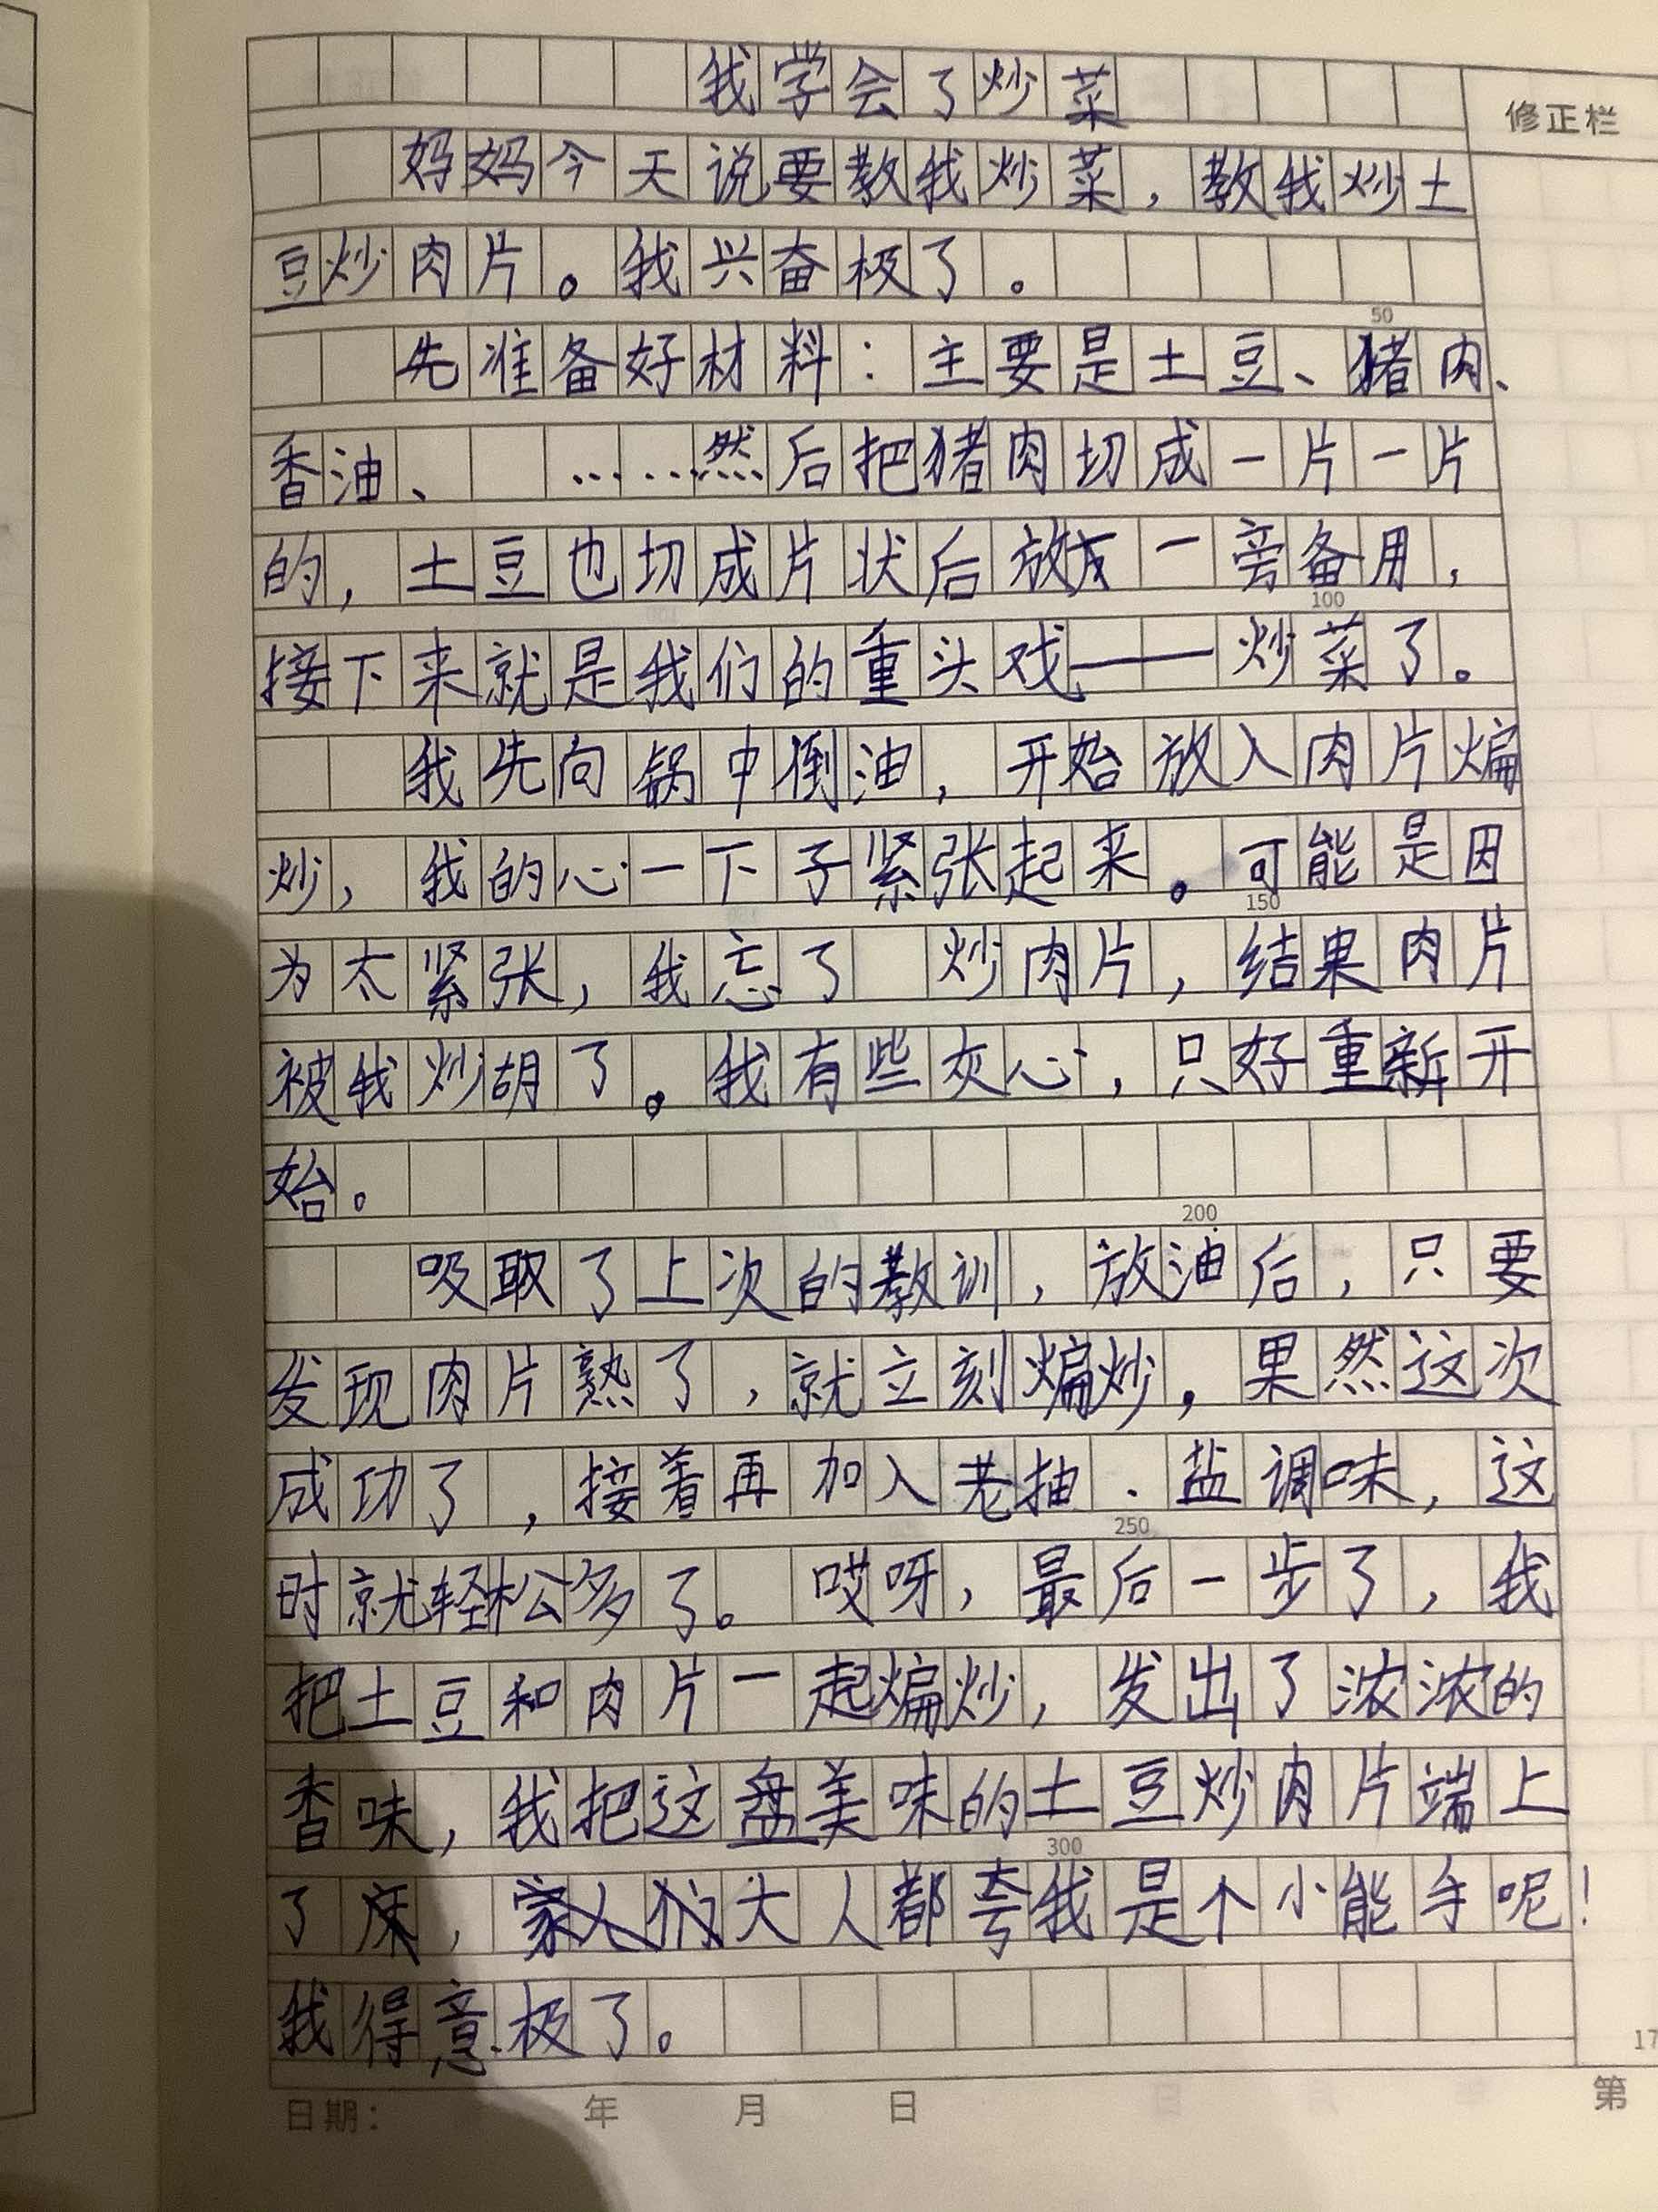 我学会了炒菜
修正栏
妈妈今天说要教我炒菜，教我炒土
豆炒肉片。我兴奋极了。
50
先准备好材料：主要是土豆、猪肉、
香油、……然后把猪肉切成一片一片
的，土豆也切成片状后放一旁备用，
100
接下来就是我们的重头戏——炒菜了。
我先向锅中倒油，开始放入肉片煸
炒，我的心一下子紧张起来。可能是因
150
为太紧张，我忘了 炒肉片，结果肉片
被我炒胡了。我有些灰心，只好重新开
始。
200
吸取了上次的教训，放油后，只要
发现肉片熟了，就立刻煸炒，果然这次
成功了，接着再加入老抽．盐调味，这
250
时就轻松多了。哎呀，最后一步了，我
把土豆和肉片一起煸炒，发出了浓浓的
香味，我把这盘美味的土豆炒肉片端上
300
了，大人都夸我是个小能手呢！
我得意极了。
17
日期： 年 月 日 第